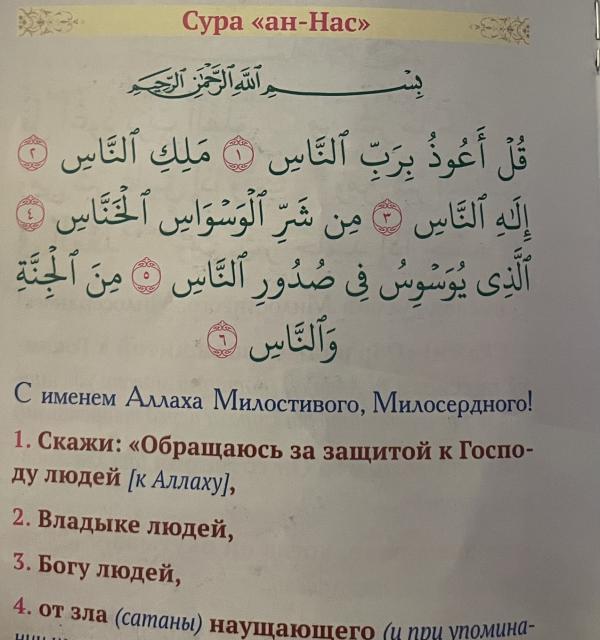 Сура «ан-Нас»
بِسْمِ ٱللَّهِ ٱلرَّحْمَٰنِ ٱلرَّحِيمِ
قُلْ أَعُوذُ بِرَبِّ ٱلنَّاسِ ١ مَلِكِ ٱلنَّاسِ ٢
إِلَٰهِ ٱلنَّاسِ ٣ مِن شَرِّ ٱلْوَسْوَاسِ ٱلْخَنَّاسِ ٤
ٱلَّذِى يُوَسْوِسُ فِى صُدُورِ ٱلنَّاسِ ٥ مِنَ ٱلْجِنَّةِ
وَٱلنَّاسِ ٦
С именем Аллаха Милостивого, Милосердного!
1. Скажи: «Обращаюсь за защитой к Госпо-
ду людей [к Аллаху],
2. Владыке людей,
3. Богу людей,
4. от зла (сатаны) наущающего (и при упомина-